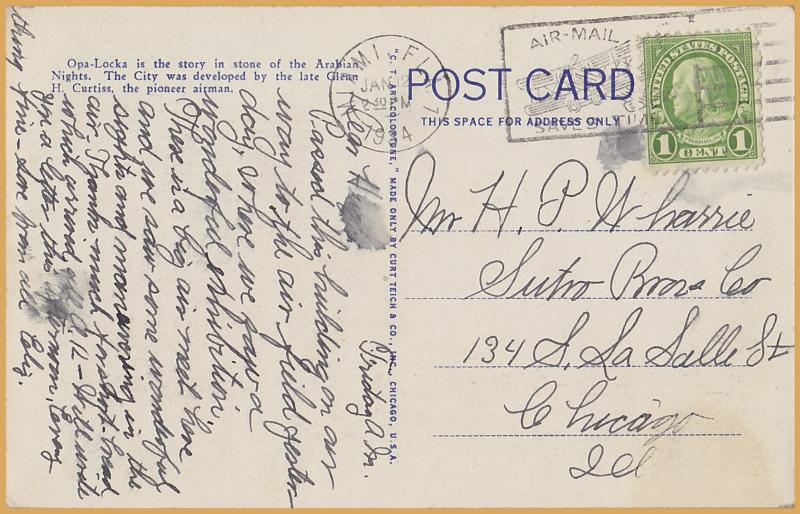 Opa-Locka is the story in stone of the Arabian
Nights. The City was developed by the late Glenn
H. Curtiss, the pioneer airman.
MIAMI, FLA.
JAN 12
30 PM
1934
AIR-MAIL
SAVES TIME
UNITED STATES POSTAGE
FRANKLIN
1 CENT 1
POST CARD
THIS SPACE FOR ADDRESS ONLY
"C. T. ART-COLORTONE," MADE ONLY BY CURT TEICH & CO., INC., CHICAGO, U.S.A.
Mr H. P. Wharrie
Sutro Bros Co
134 S. La Salle St
Chicago
Ill
Friday A.M.
Dear
Passed this building on our
way to the air field yester
day, where we saw a
wonderful exhibition.
There is a big air meet here
and we saw some wonderful
sights and maneuvering in the
air. Thanks much for
which arrived Will write
you a letter this
thing fine - love from all